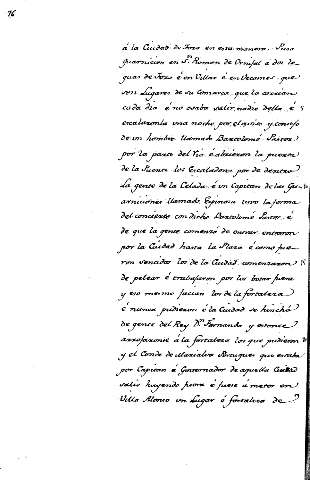 76
á la Ciudad de Toro en esta manera. Puso
guarnicion en Sn. Roman de Ornisa á dos le-
guas de Toro é en Villar é en Vecames, que
son Lugares de su Comarca, que la corrian
cada dia é no osaba salir nadie della, é
escaláronla una noche por el aviso, y consejo
de un hombre llamado Bartolomé Pastor
por la parte del Rio é abrieron la puerta
de la Puente los Escaladores por de dentro
La gente de la Celada, é un Capitan de las Gu-
arniciones llamado Espinosa tuvo la forma
del concierto con dicho Bartolomé Pastor, é
de que la gente comenzó de entrar entraron
por la Ciudad hasta la Plaza é como fue-
ron sentidos los de la Ciudad comenzaron
de pelear é trabajaron por los botar fuera
y eso mismo facian los de la fortaleza
é nunca pudieron é la Ciudad se hinchó
de gente del Rey Dn. Fernando y estonces
acogieronse á la fortaleza los que pudieron
y el Conde de Marialva Portugues que estaba
por Capitan é Governador de aquella Ciudad
salió huyendo fuera é fuese á meter en
Villa Alonso un Lugar é fortaleza de